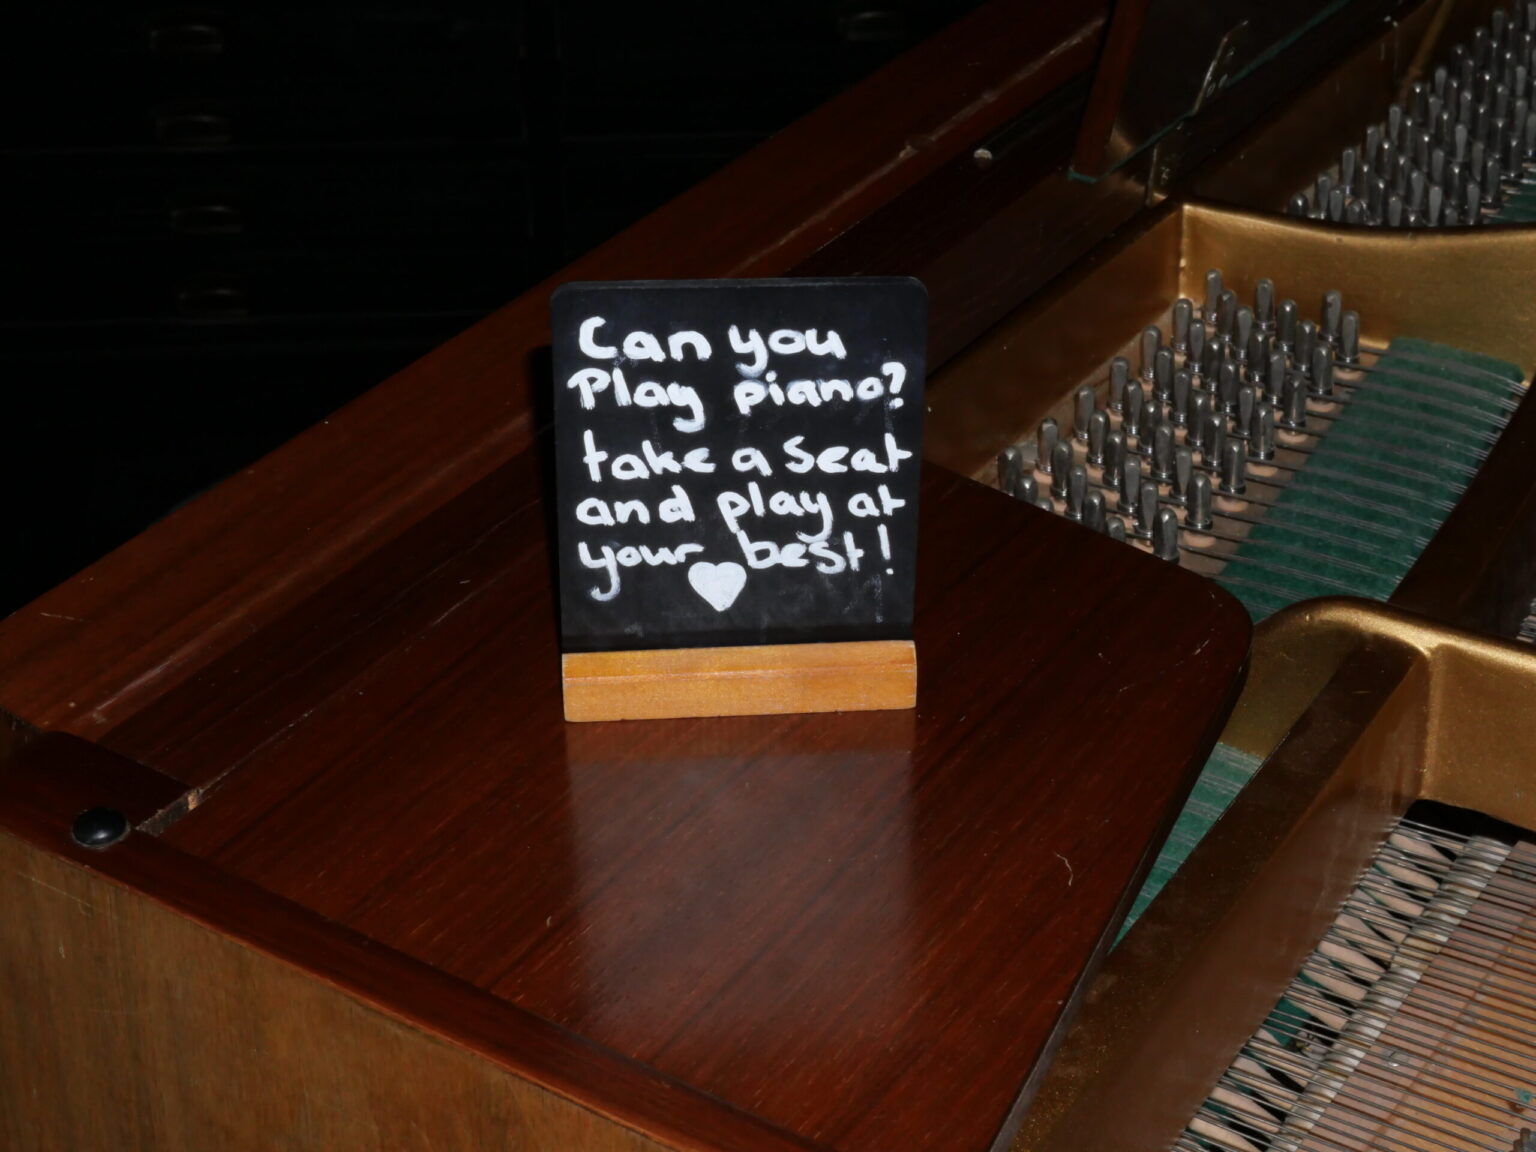 Can you
Play piano?
take a seat
and play at
your best!